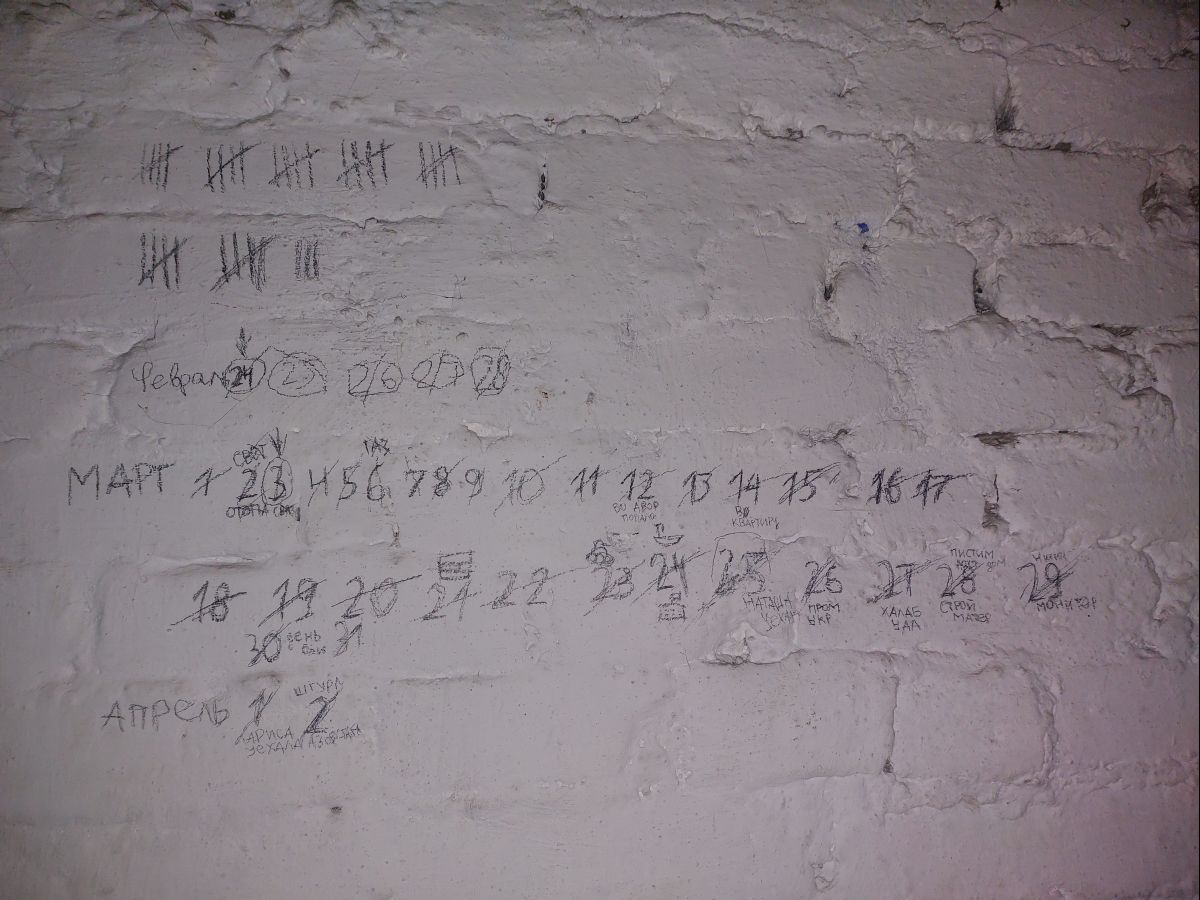 Февраль 24 25 26 27 28
СВЕТ ГАЗ
МАРТ 1 2 3 4 5 6 7 8 9 10 11 12 13 14 15 16 17
ВО ДВОР В
ПОПАЛИ КВАРТИРУ
18 19 20 21 22 23 24 25 26 27 28 29
НАТАША ПРОМ ХАЛАБ СТРОЙ
УЕХАЛ УКР УДА МАТЕР
30 31
ШТУРМ
АПРЕЛЬ 1 2
ЛАРИСА
УЕХАЛА